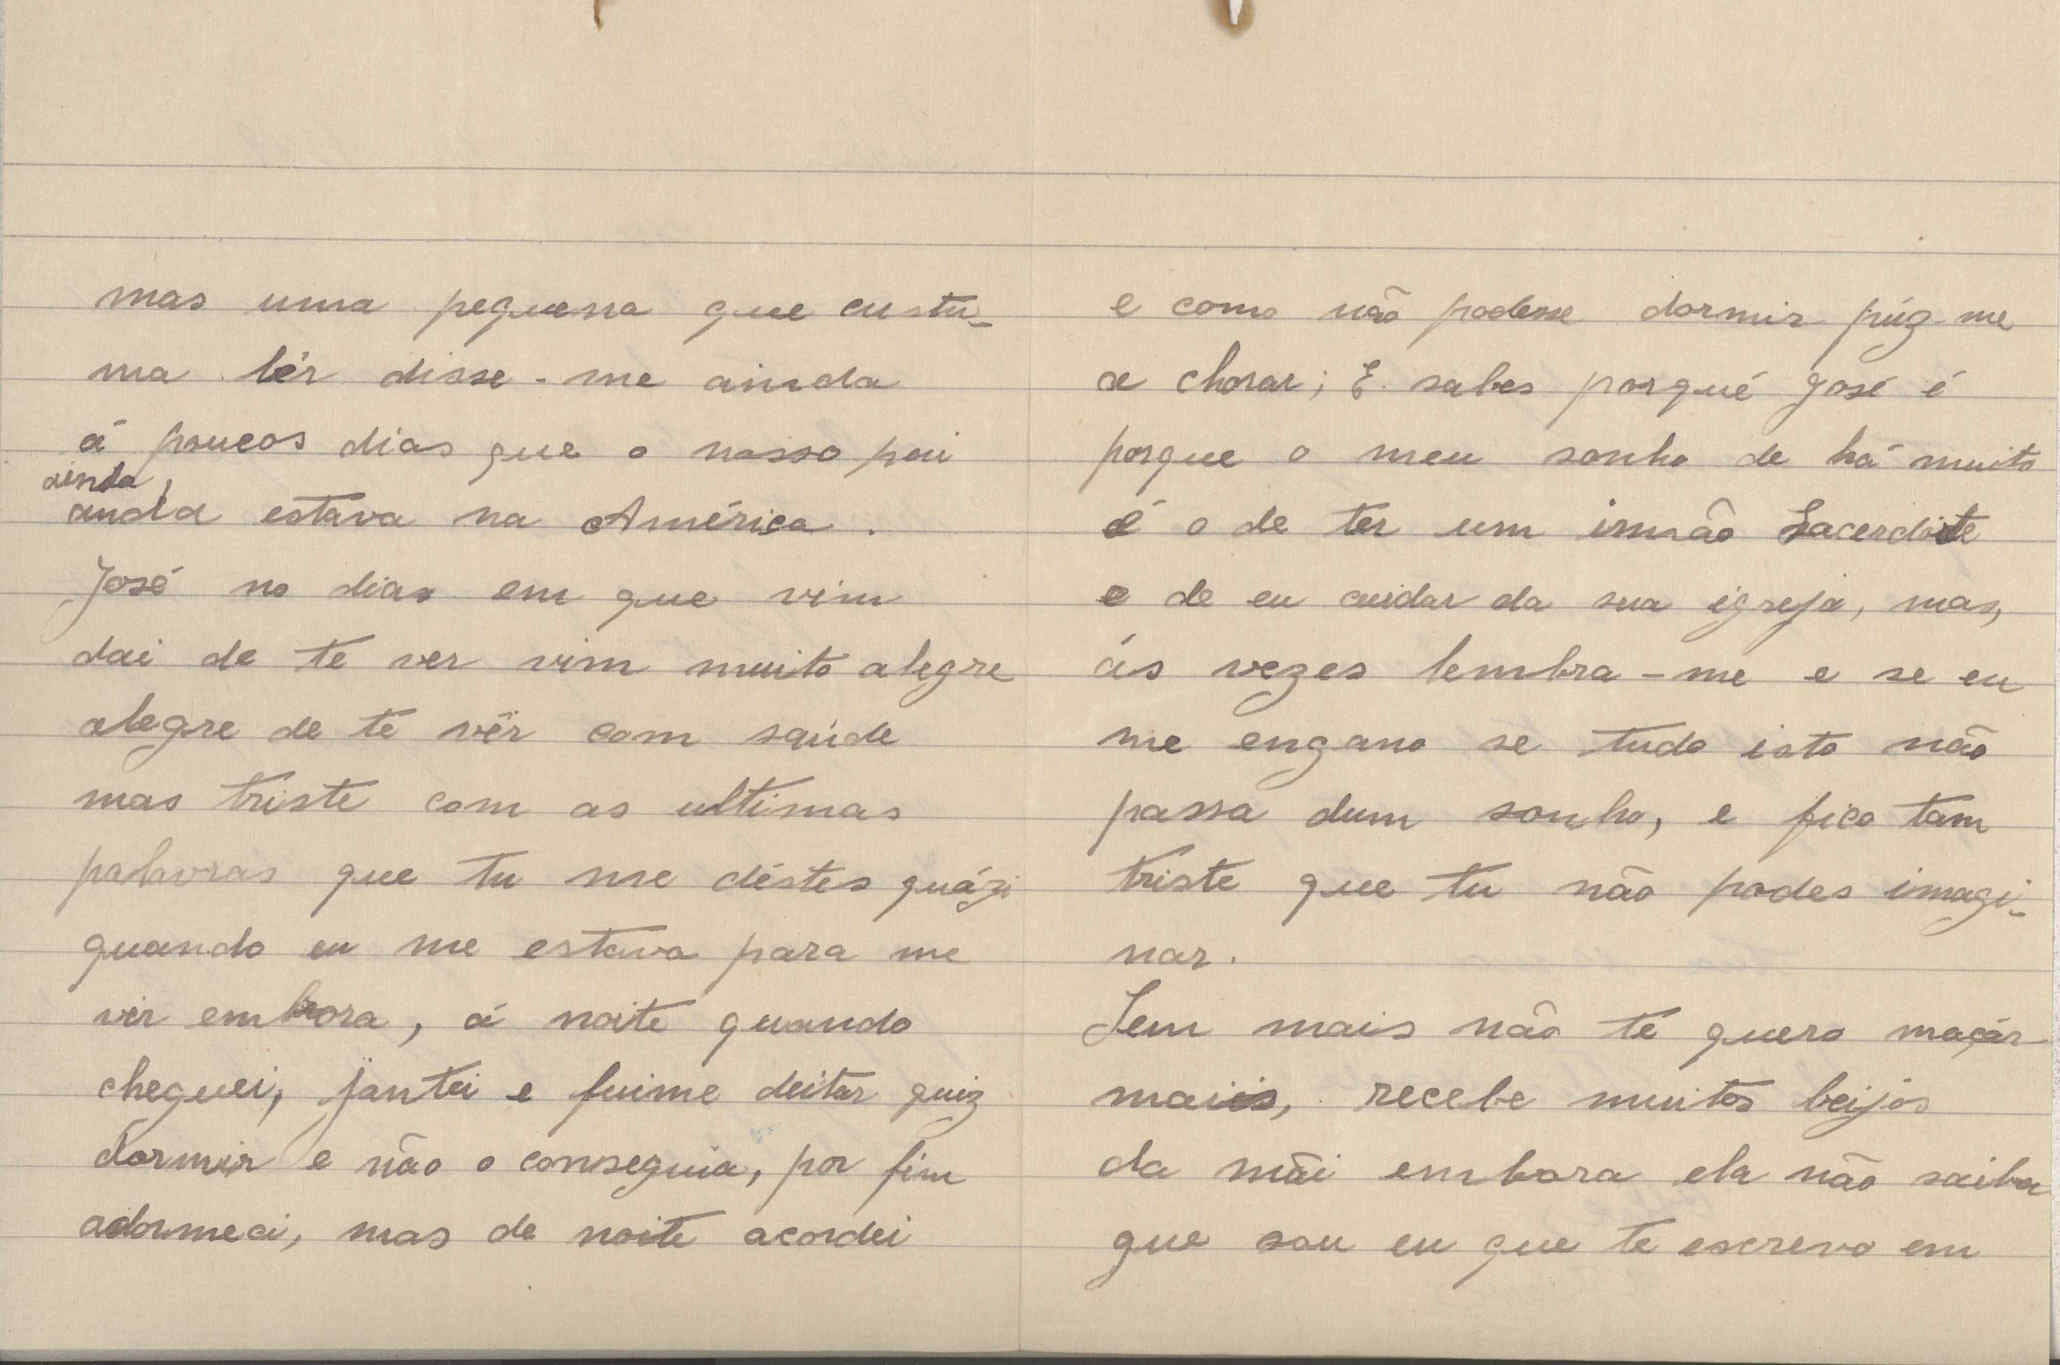 mas uma pequena que custu-
ma lêr disse-me ainda
á poucos dias que o nosso pai
ainda
anda estava na América.
José no dia em que vim
dai de te ver vim muito alegre
alegre de te vêr com saúde
mas triste com as ultimas
palavras que tu me déstes quázi
quando eu me estava para me
vir embora, á noite quando
cheguei, jantei e fuime deitar quiz
dormir e não o conseguia, por fim
adormeci, mas de noite acordei
e como não podesse dormir púz-me
a chorar; E sabes porqué José é
porque o meu sonho de há muito
é o de ter um irmão Sacerdote
e de eu cuidar da sua igreja, mas,
ás vezes lembra-me e se eu
me engano se tudo isto não
passa dum sonho, e fico tam
triste que tu não podes imagi-
nar.
Sem mais não te quero maçár
mais, recebe muitos beijos
da mãi embora ela não saiba
que sou eu que te escrevo em